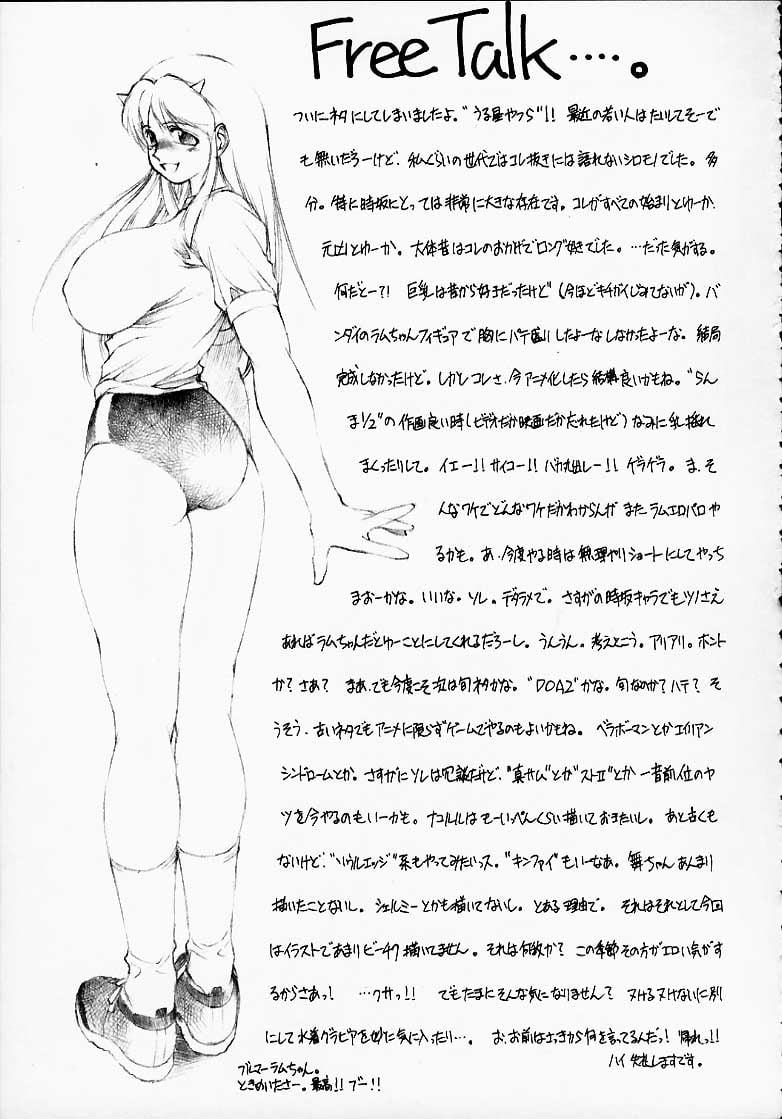 Free Talk‥‥。
ついにネタにしてしまいましたよ。"うる星やつら"!! 最近の若い人はたいしてそーで
も無いだろーけど、私ぐらいの世代ではコレ抜きには語れないシロモノでした。多
分。特に時坂にとっては非常に大きな存在です。コレがすべての始まりとゆーか、
元凶とゆーか。大体昔はコレのおかげでロング好きでした。…だった気がする。
何だとー?! 巨乳は昔から好きだったけど(今ほどキチガイじみてないが)。バ
ンダイのラムちゃんフィギュアで胸にパテ盛りしたよーなしなかったよーな。結局
完成しなかったけど。しかしコレさ、今アニメ化したら結構良いかもね。"らん
ま1/2"の作画良い時(ビデオだか映画だか忘れたけど)なみに乳揺れ
まくったりして。イエー!! サイコー!! バカ丸出しー!! ゲラゲラ。ま、そ
んなワケでどんなワケだかわからんが またラムエロパロや
るかも。あ、今度やる時は無理やりショートにしてやっち
まおーかな。いいな。ソレ。デタラメで。さすがの時坂キャラでもツノさえ
あればラムちゃんだとゆーことにしてくれるだろーし。うんうん。考えとこう。アリアリ。ホント
か? さあ? まあ、でも今度こそ次は旬ネタかな。"DOA2"かな。旬なのか?ハテ? そ
うそう、古いネタでもアニメに限らずゲームでやるのもよいかもね。ベラボーマンとかエイリアン
シンドロームとか。さすがにソレは冗談だけど、"真サム"とか"ストⅡ"とか 一昔前位のヤ
ツを今やるのもいーかも。ナコルルはもーいっぺんくらい描いておきたいし。あと古くも
ないけど、"ソウルエッジ"系もやってみたいっス。"キンファイ"もいーなあ。舞ちゃんあんまり
描いたことないし。シェルミーとかも描いてないし。とある理由で。 それはそれとして今回
はイラストであまりビーチク描いてません。それは何故か? この季節その方がエロい気がす
るからさあっ! …クサっ!! でもたまにそんな気になりません? ヌけるヌけないに別
にして水着グラビアを妙に気に入ったり…。お、お前はさっきから何を言ってるんだっ! 帰れっ!!
ハイ 失礼しますです。
ブルマーラムちゃん。
ときめいたさー。最高!! ブー!!